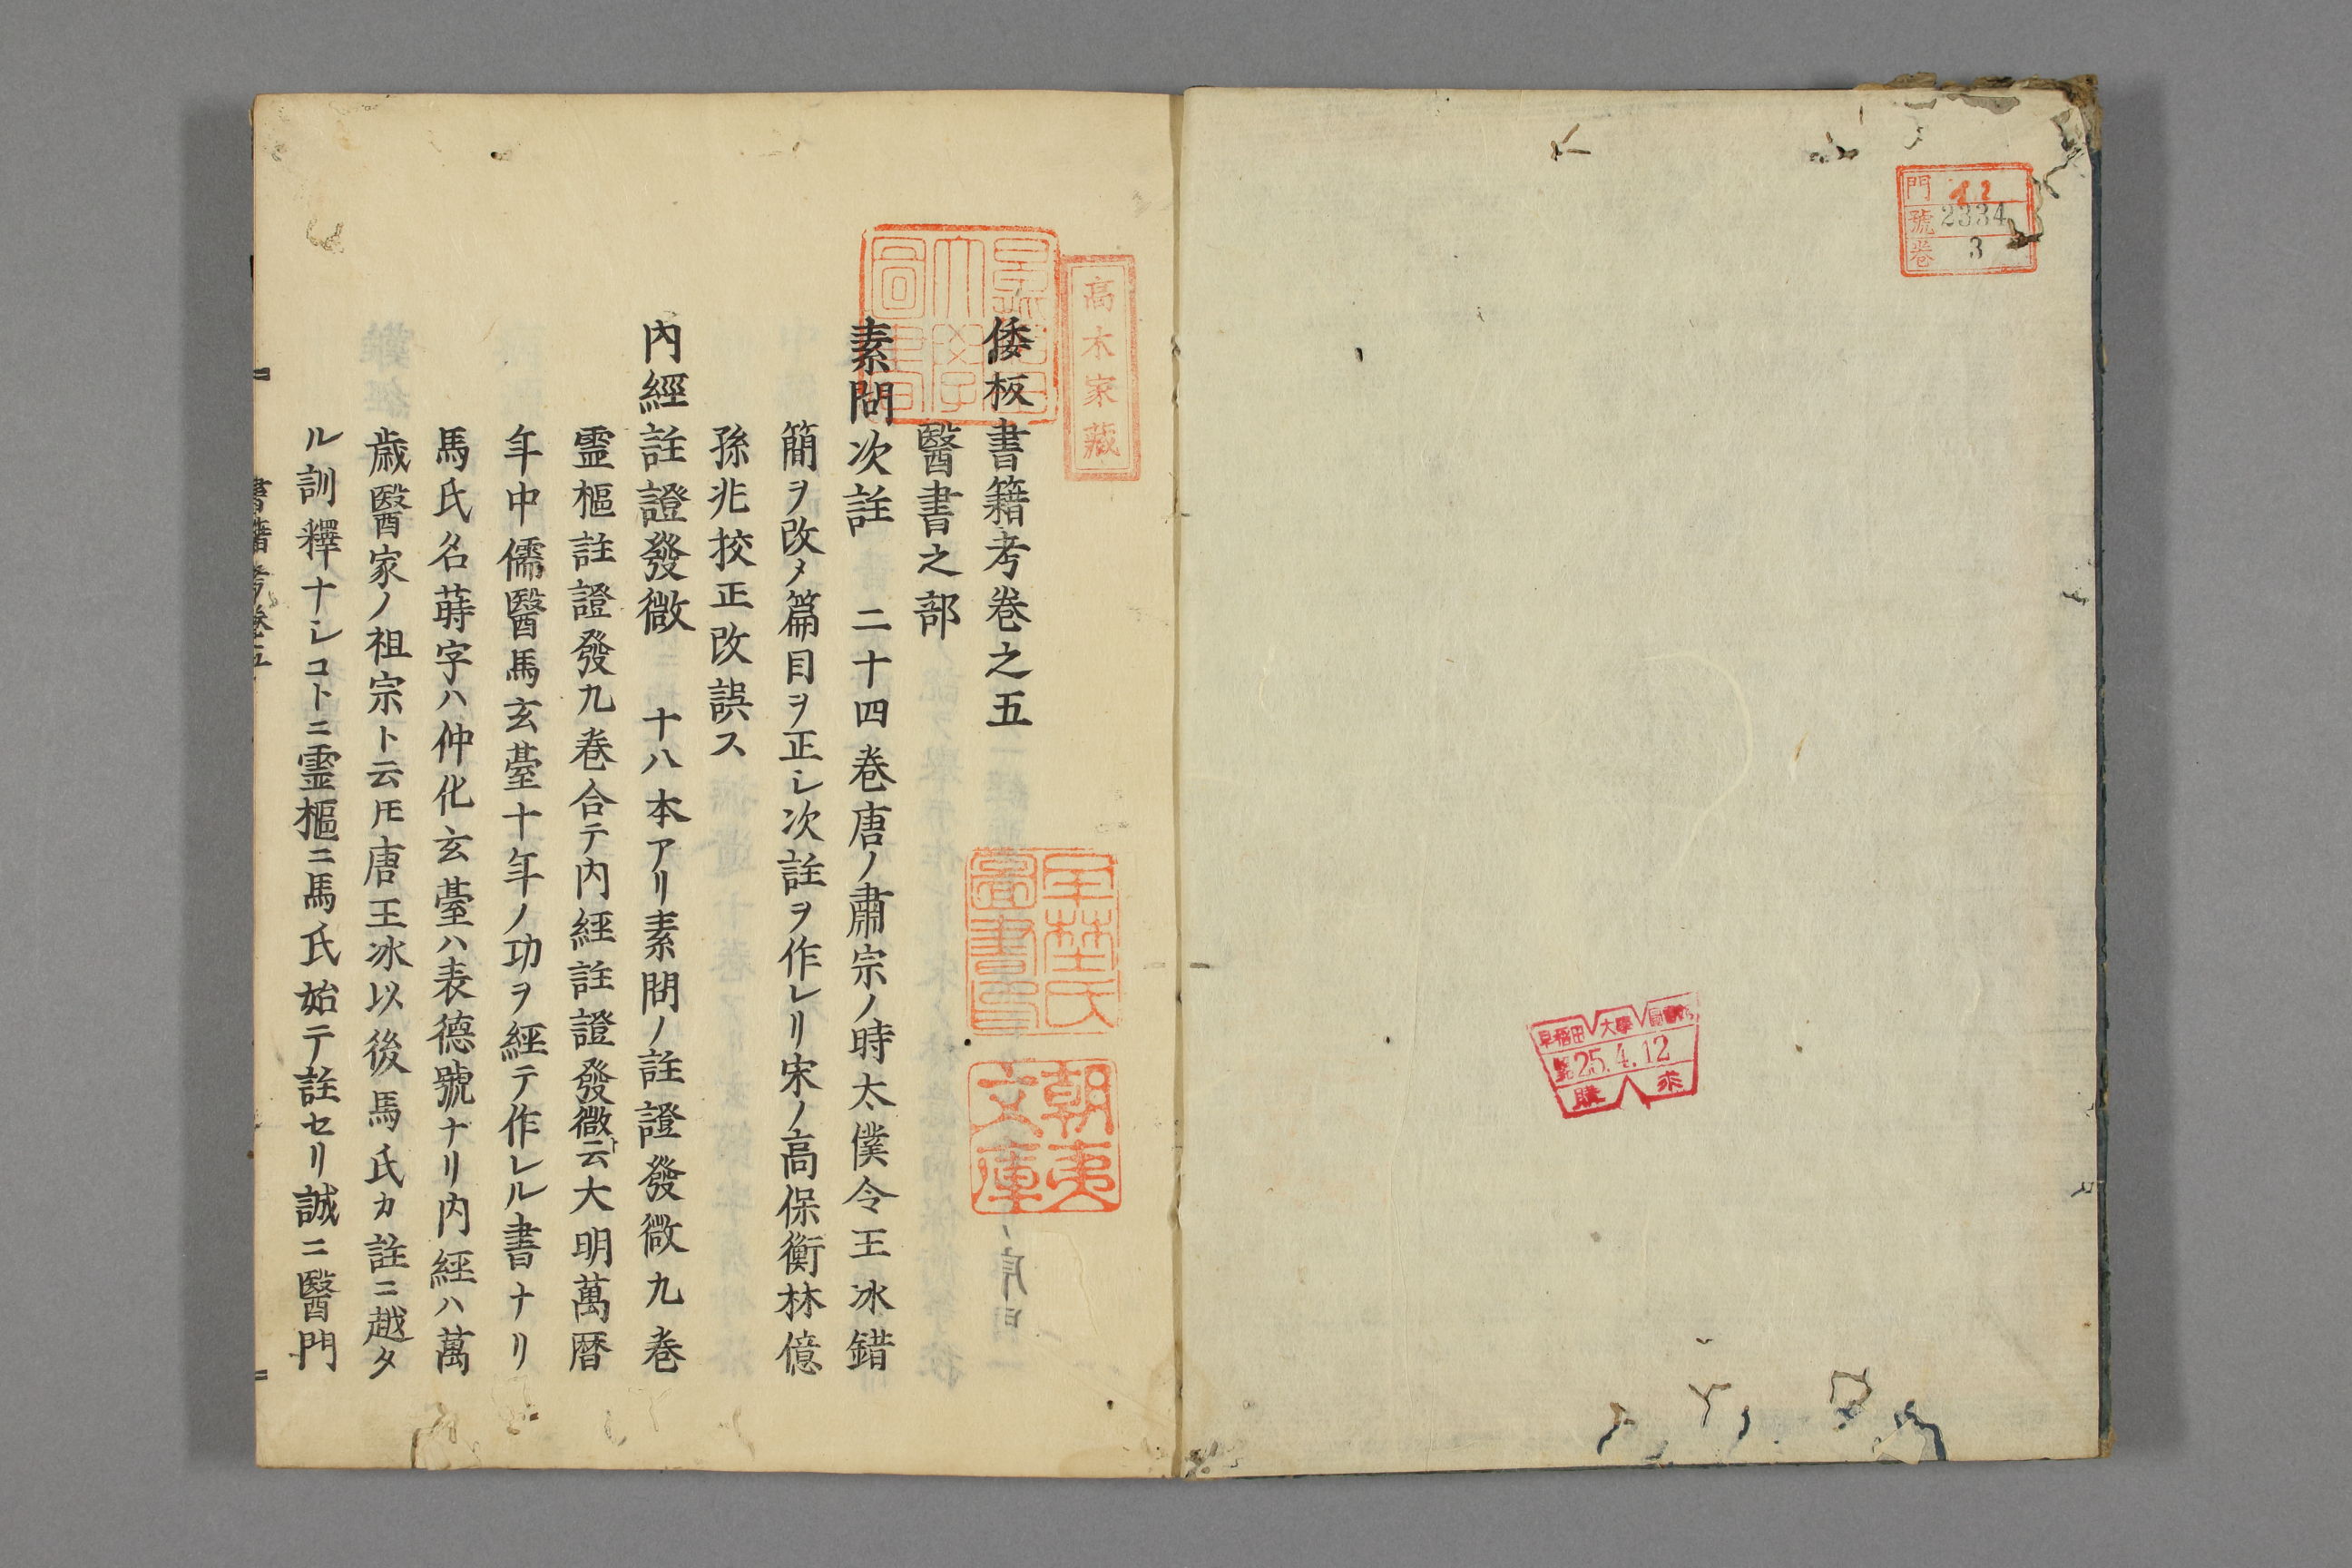 門 12
號 2334
卷 3
早稻田大學圖書
25.4.12
購求
高木家藏
早稻田大學圖書
朝夷文庫
倭板書籍考卷之五
醫書之部
素問次註 二十四卷唐ノ肅宗ノ時太僕令王冰錯
簡ヲ改メ篇目ヲ正シ次註ヲ作レリ宋ノ高保衡林億
孫兆挍正改誤ス
內經註證發微 十八本アリ素問ノ註證發微九卷
霊樞註證發九卷合テ内經註證發微ト云大明萬曆
年中儒醫馬玄臺十年ノ功ヲ經テ作レル書ナリ
馬氏名蒔字ハ仲化玄臺ハ表德號ナリ内經ハ萬
歳醫家ノ祖宗ト云𪜈唐王冰以後馬氏カ註ニ越タ
ル訓釋ナシコトニ霊樞ニ馬氏始テ註セリ誠ニ醫門
書籍考卷五